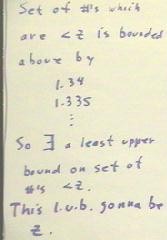 Set of #'s which
are < z is bounded
above by
1.34
1.335
⋮
So ∃ a least upper
bound on set of
#'s < z.
This l.u.b. gonna be
z.